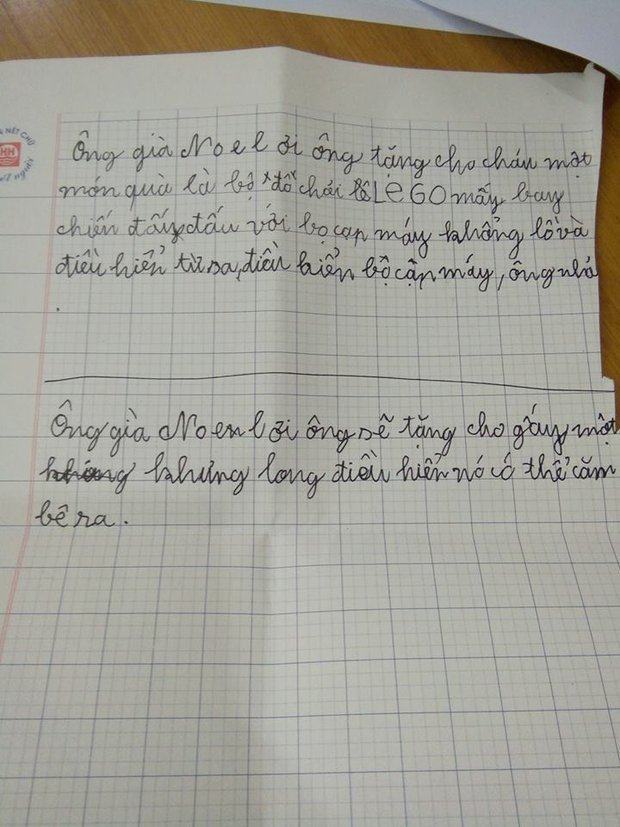 NÉT CHỮ
HH
Ông già Noel ơi ông tặng cho cháu một
món quà là bộ đồ chải lô LEGO mấy bay
chiến đấy đấu với bọ cạp máy khổng lồ và
điều hiển từ sa, điều hiển bộ cận máy, ông nhá
.
Ông già Noen lơi ông sẽ tặng cho gấy một
khưng long điều hiển nó có thể căm
bê ra.